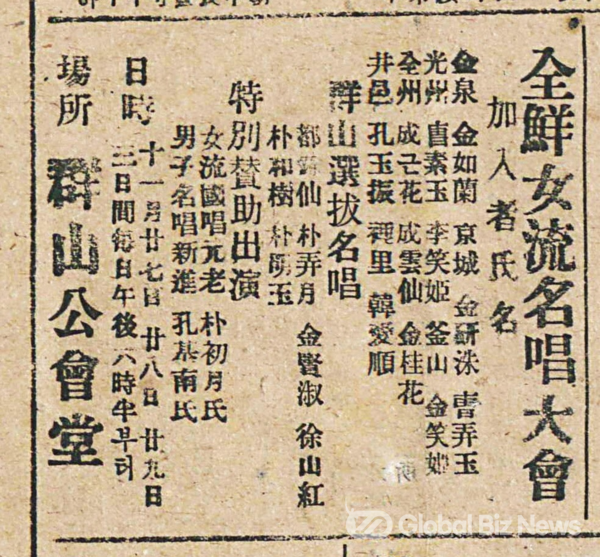 全鮮女流名唱大會
加入者氏名
金泉 金如蘭 京城 金硏洙 曺弄玉
光州 素玉 李笑姬 釜山 金笑姬
全州 成근花 成雲仙 金桂花
井邑 孔玉振 裡里 韓愛順
群山選拔名唱
朴弄月 金賢淑 徐山紅
朴和樹 朴明玉
特別賛助出演
女流國唱元老 朴初月氏
男子名唱新進 孔基南氏
日時 十一月廿七日 廿八日 廿九日
三日間每日午後六時半부터
場所 群山公會堂
Global Biz News